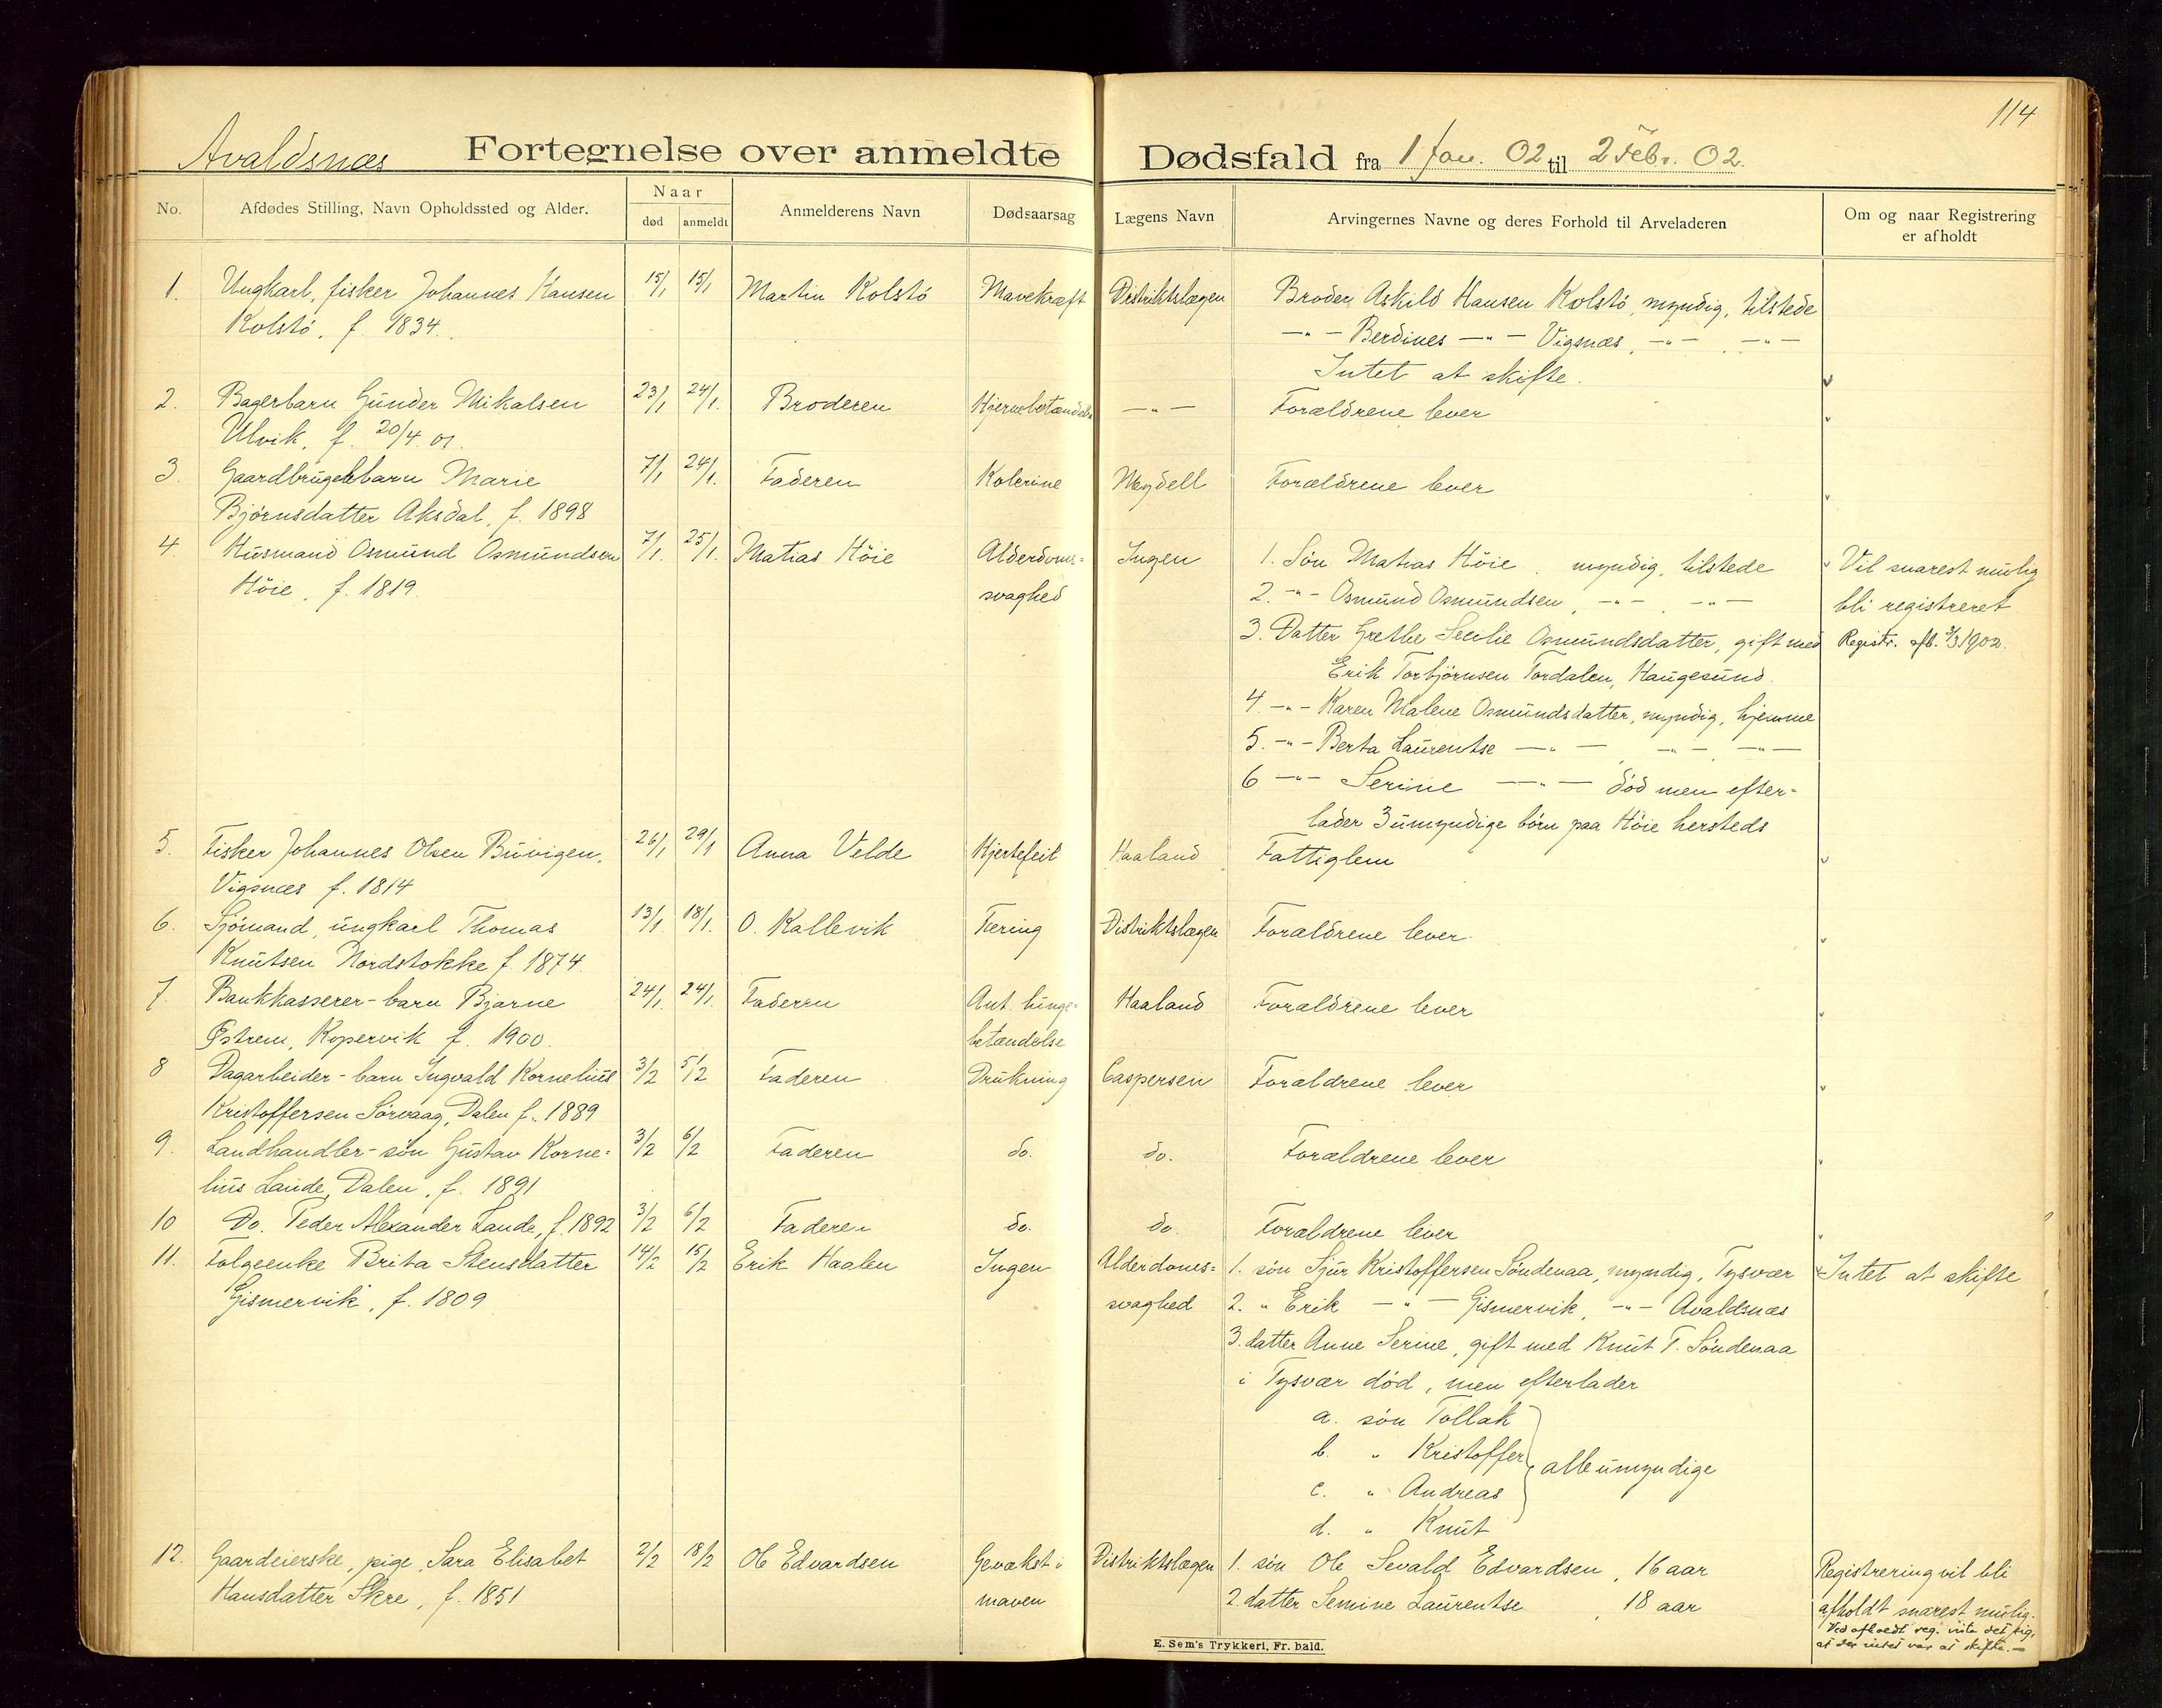 114
Avaldsnæs Fortegnelse over anmeldte Dødsfald fra 1 Jan. 02 til 2 Febr. 02.
No. Afdødes Stilling, Navn Opholdssted og Alder. Naar død anmeldt Anmelderens Navn Dødsaarsag Lægens Navn Arvingernes Navne og deres Forhold til Arveladeren Om og naar Registrering er afholdt
1. Ungkarl, fisker Johannes Hansen 15/1 15/1 Martin Kolstö Mavekræft Distriktslægen Broder Askild Hansen Kolstö, myndig, tilstede
Kolstö, f. 1834. —"— Berdines —"— Vigsnæs, —"—, —"—
Intet at skifte.
2. Bagerbarn Gunder Mikalsen 23/1 24/1. Broderen Hjernebetændelse —"— Forældrene lever
Ulvik, f. 20/4 01.
3 Gaardbrugerbarn Marie 7/1 24/1. Faderen Kolerine Meydell Forældrene lever
Bjørnsdatter Aksdal, f. 1898
4. Husmand Osmund Osmundsen 7/1. 25/1. Matias Höie Alderdoms= Ingen 1. Sön Matias Höie, myndig, tilstede Vil snarest mulig
Höie, f. 1819. svaghed 2. —"— Osmund Osmundsen, —"—, —"— bli registreret
3. Datter Grethe Secilie Osmundsdatter, gift med Registr. afh. 3/3 1902.
Erik Torbjørnsen Tordalen, Haugesund.
4. —"— Karen Malene Osmundsdatter, myndig, hjemme
5. —"— Berta Laurentse —"— —"—, —"—
6 —"— Serine —"— död men efter=
lader 3 umyndige börn paa Höie hersteds
5. Fisker Johannes Olsen Buvigen, 26/1 29/1 Anna Velde Hjertefeil Haaland Fattiglem
Vigsnæs f. 1814
6. Sjömand, ungkarl Thomas 13/1. 18/1. O. Kallevik Tæring Distriktslægen Forældrene lever
Knutsen Nordstokke f 1874.
7. Bankkasserer-barn Bjarne 24/1. 24/1. Faderen Ant. lunge= Haaland Forældrene lever
Østrem, Kopervik f. 1900. betændelse
8 Dagarbeider-barn Ingvald Kornelius 3/2 5/2 Faderen Drukning Caspersen Forældrene lever
Kristoffersen Sörvaag, Dalen f. 1889
9. Landhandler-sön Gustav Korne= 3/2 6/2 Faderen do. do. Forældrene lever
lius Lande, Dalen, f. 1891
10 Do. Peder Alexander Lande, f. 1892 3/2 6/2 Faderen do. do. Forældrene lever
11. Folgeenke Brita Stensdatter 14/2 15/2 Erik Haalen Ingen Alderdoms= 1. sön Sjur Kristoffersen Söndenaa, myndig, Tysvær Intet at skifte
Gismervik, f. 1809 svaghed 2. " Erik —"— Gismervik, —"— Avaldsnæs
3. datter Anne Serine, gift med Knut T. Söndenaa
i Tysvær död, men efterlader
a. sön Tollak
b. " Kristoffer
alle umyndige
c. " Andreas
d. " Knut
12. Gaardeierske, pige, Sara Elisabet 2/2 18/2 Ole Edvardsen Gevækst i Distriktslægen 1. sön Ole Sevald Edvardsen, 16 aar Registrering vil bli
Hansdatter Skre, f. 1851 maven 2. datter Semine Laurentse, 18 aar afholdt snarest mulig.
Ved afholdt reg. viste det sig,
at der intet var at skifte.—
E. Sem's Trykkeri, Fr. hald.